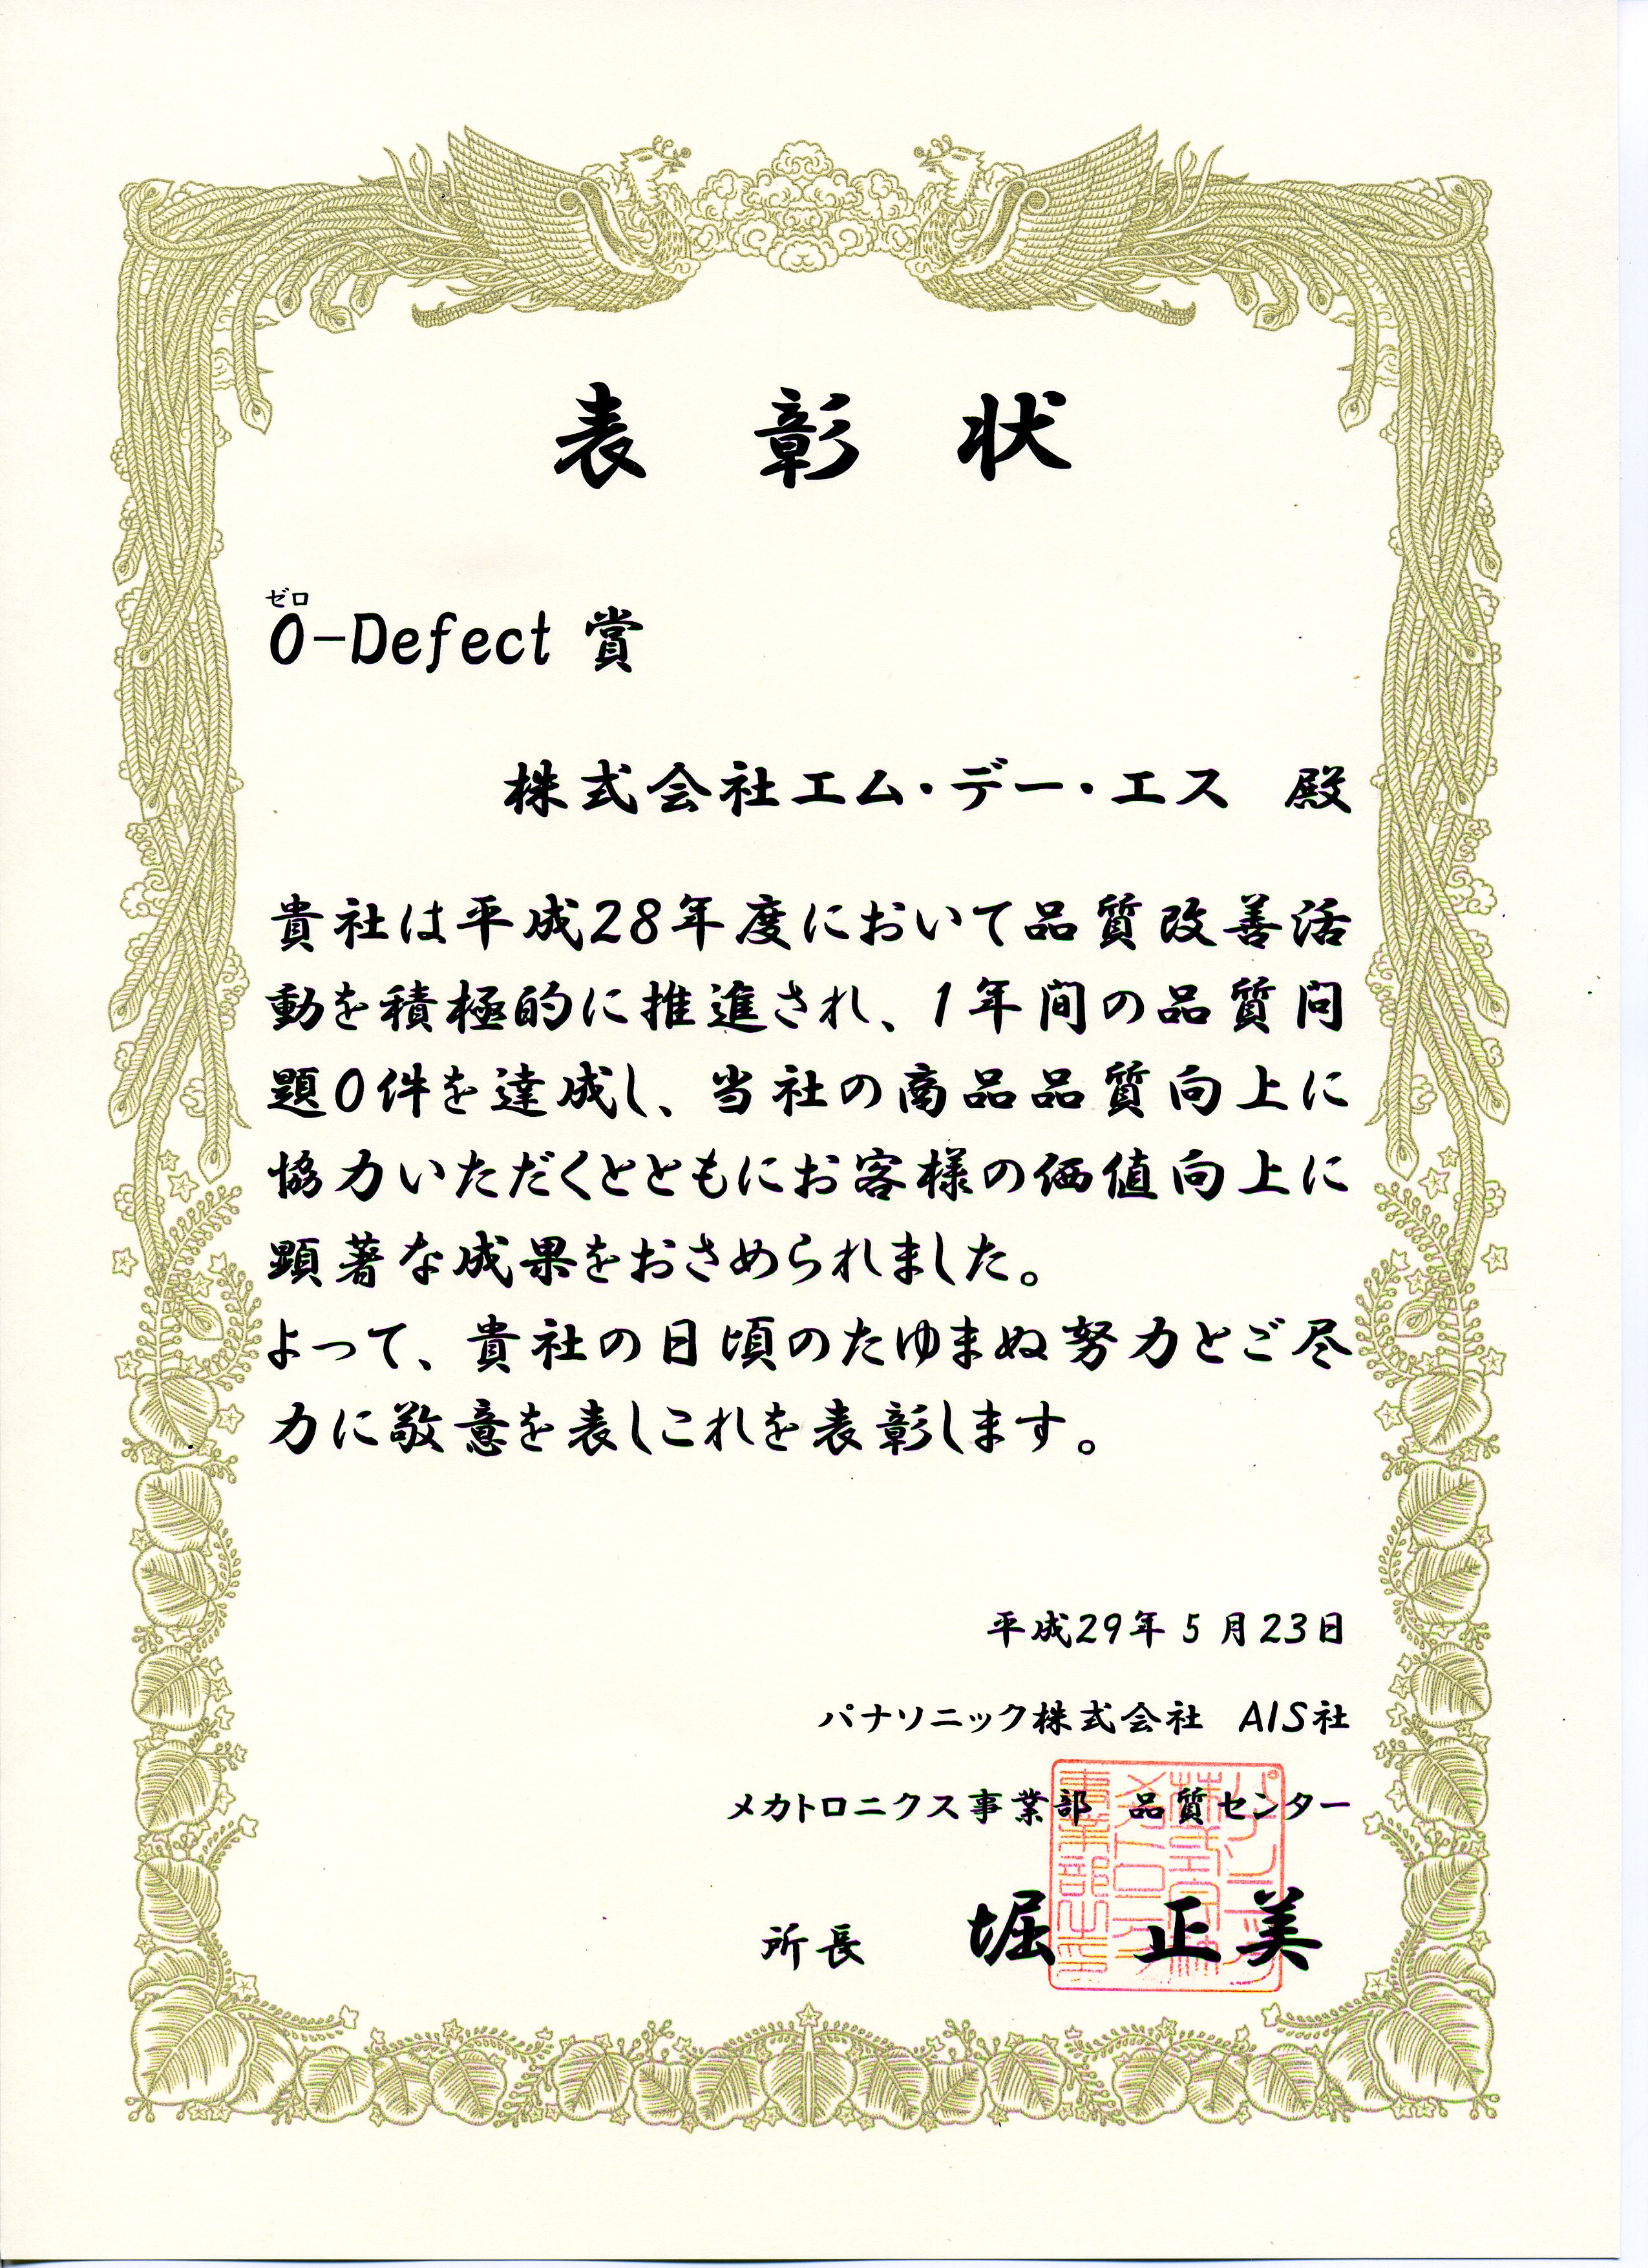 表彰状
ゼロ
0-Defect 賞
株式会社エム・デー・エス 殿
貴社は平成28年度において品質改善活
動を積極的に推進され、1年間の品質問
題0件を達成し、当社の商品品質向上に
協力いただくとともにお客様の価値向上に
顕著な成果をおさめられました。
よって、貴社の日頃のたゆまぬ努力とご尽
力に敬意を表しこれを表彰します。
平成29年5月23日
パナソニック株式会社 AIS社
メカトロニクス事業部 品質センター
所長 堀 正美